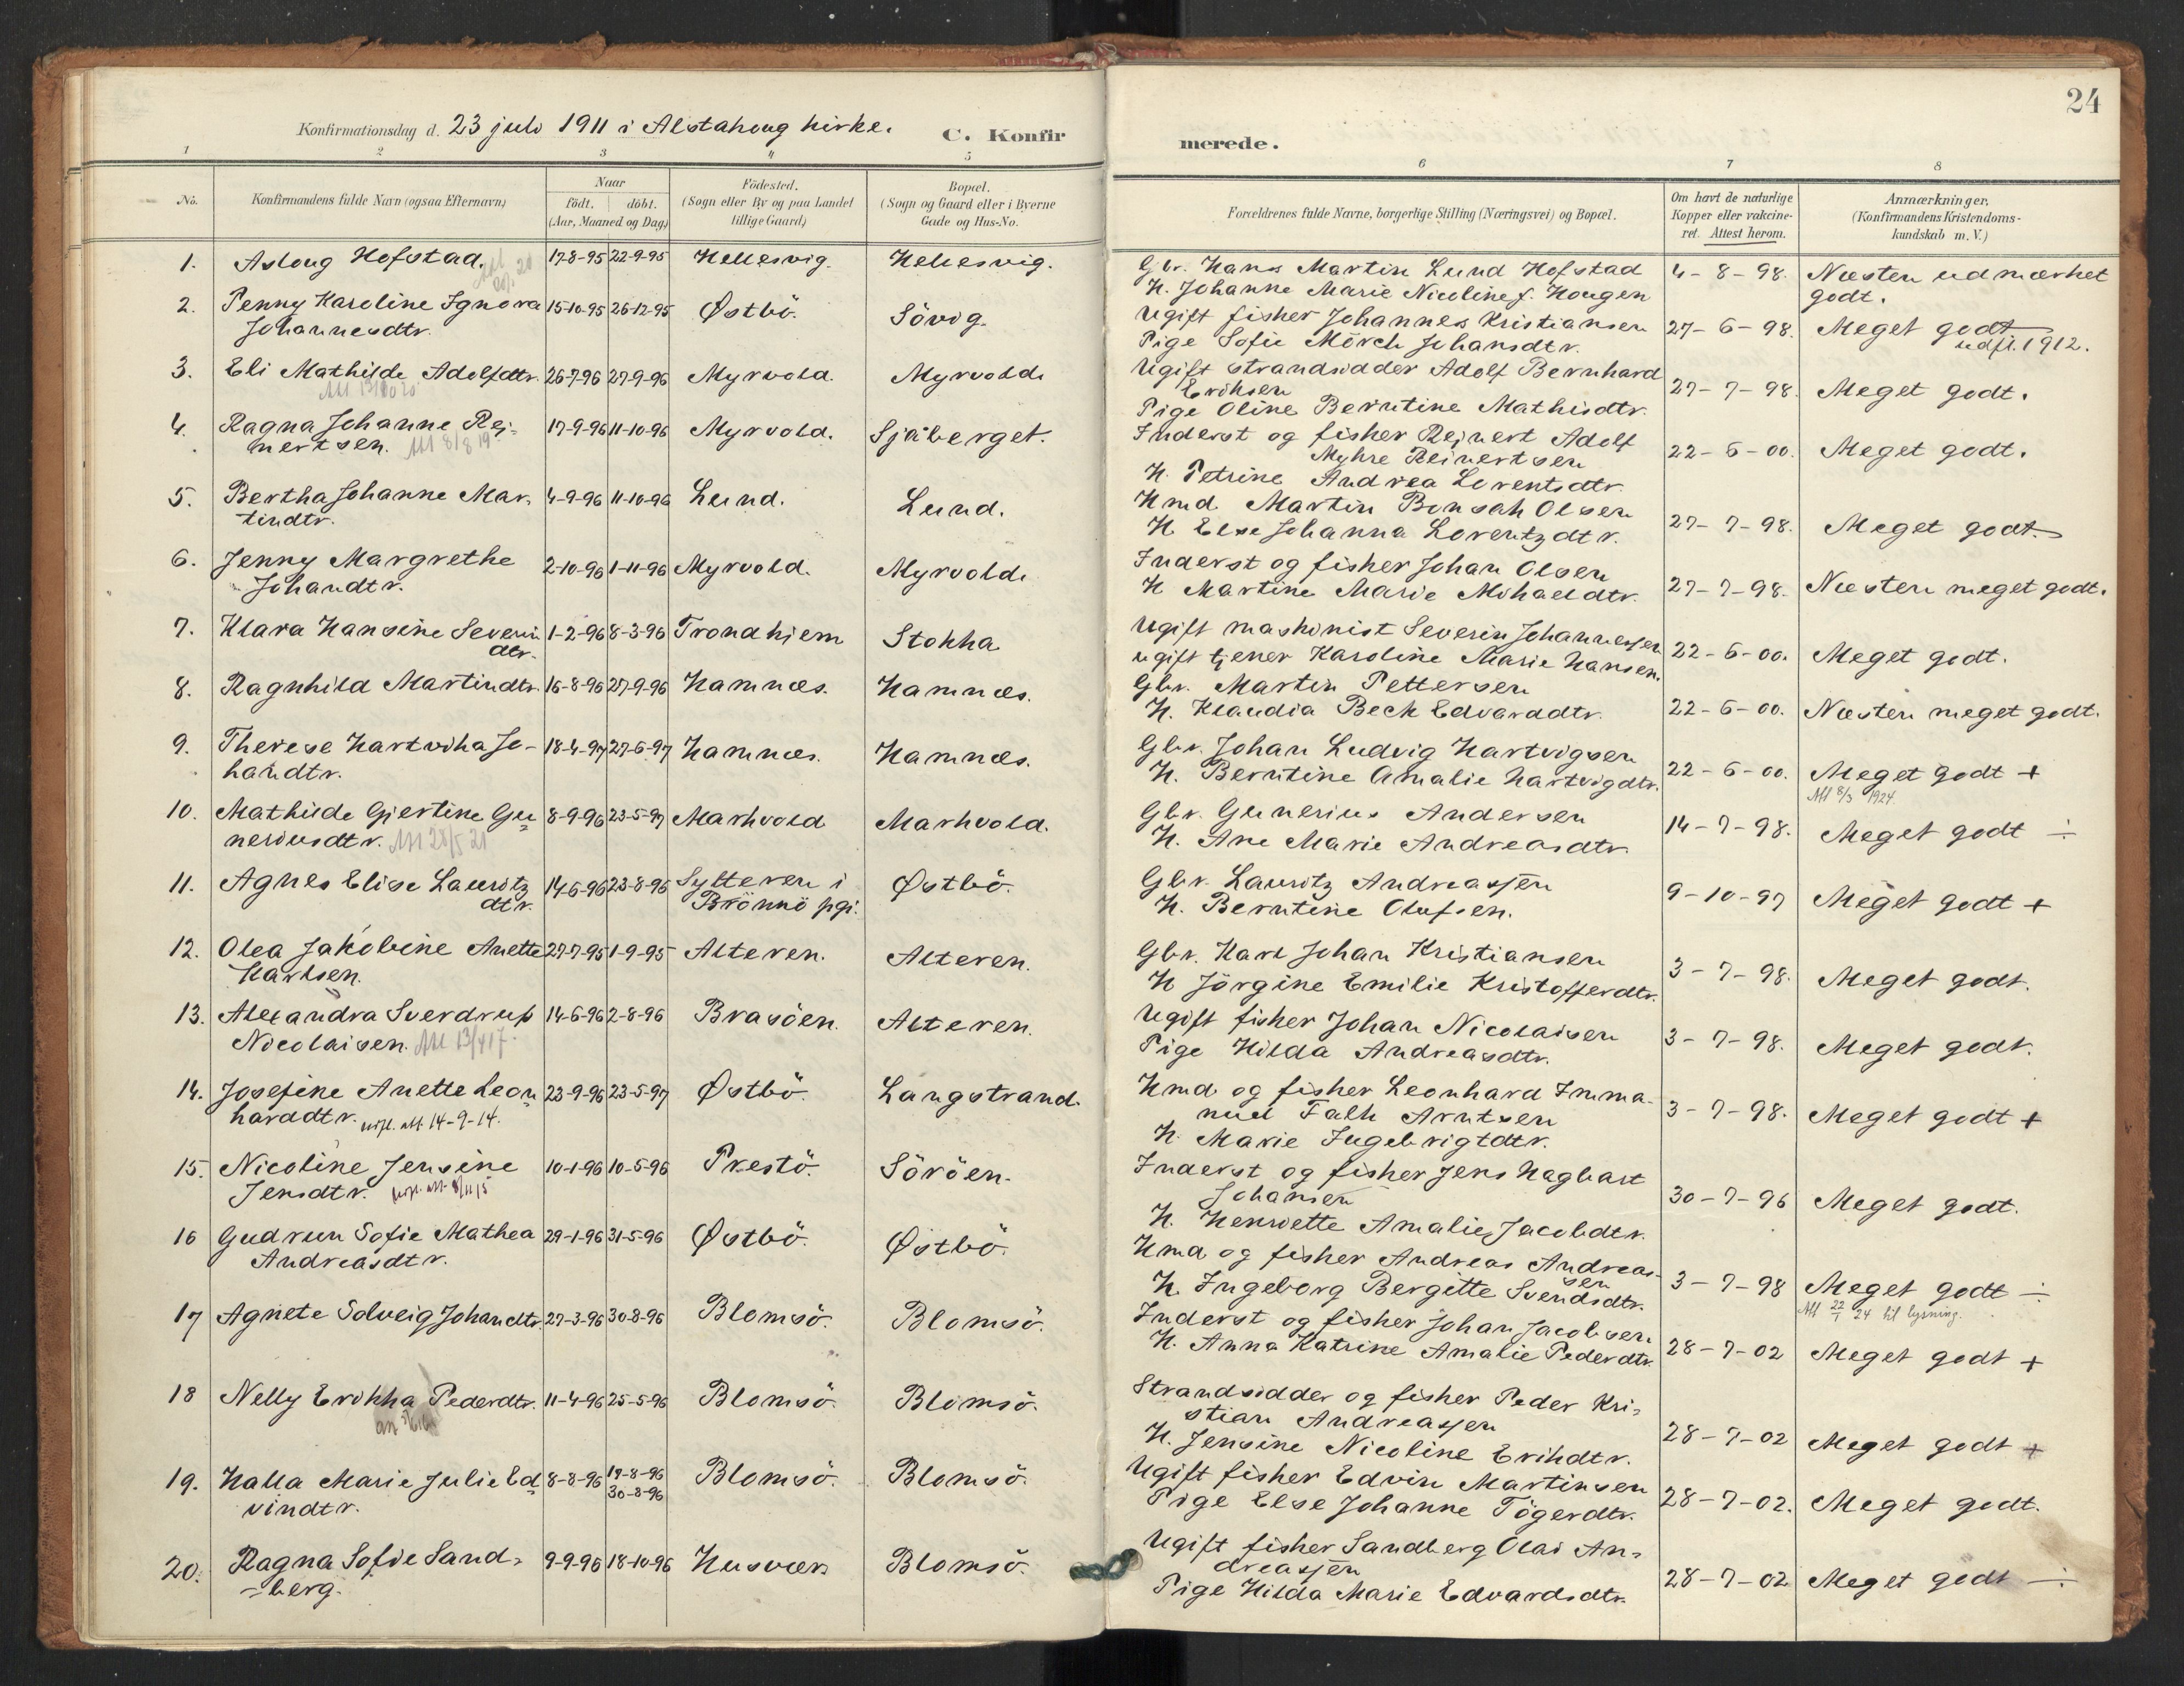 24
Konfirmationsdag d. 23 juli 1911 i Alstahoug kirke.
C. Konfir
merede.
1 2 3 4 5 6 7 8
No.
Konfirmandens fulde Navn (ogsaa Efternavn)
Naar
födt. döbt.
(Aar, Maaned og Dag)
Födested.
(Sogn eller By og paa Landet
tillige Gaard)
Bopæl.
(Sogn og Gaard eller i Byerne
Gade og Hus-No.
Forældrenes fulde Navne, borgerlige Stilling (Næringsvei) og Bopæl.
Om havt de naturlige
Kopper eller vakcine-
ret. Attest herom.
Anmærkninger.
(Konfirmandens Kristendoms-
kundskab m. V.)
1. Aslaug Hofstad. 17-8-95 22-9-95 Hellesvig. Hellesvig.
Gbr. Hans Martin Lund Hofstad 4-8-98. Næsten udmærket
H. Johanne Marie Nicoline f. Hougen godt.
2. Penny Karoline Ignora 15-10-95 26-12-95 Østbö. Sövig.
Johannesdtr.
Ugift fisker Johannes Kristiansen 27-6-98. Meget godt
Pige Sofie Mörch Johansdtr. udfl. 1912.
3. Eli Mathilde Adolfdtr. 26-7-96 27-9-96 Myrvold. Myrvold.
Ugift strandsidder Adolf Bernhard
Eriksen 27-7-98. Meget godt.
Pige Oline Berntine Mathisdtr.
4. Ragna Johanne Rej- 17-9-96 11-10-96 Myrvold. Sjåberget.
nertsen. Att 8/8 19
Inderst og fisker Rejnert Adolf
Myhre Reinertsen 22-6-00. Meget godt.
H. Petrine Andrea Lorentsdtr.
5. Bertha Johanne Mar- 4-9-96 11-10-96 Lund. Lund.
tindtr.
Hmd. Martin Bonsak Olsen 27-7-98. Meget godt.
H. Else Johanna Lorentzdtr.
6. Jenny Margrethe 2-10-96 1-11-96 Myrvold. Myrvold.
Johandtr.
Inderst og fisker Johan Olsen
H Martine Marie Mikaeldtr. 27-7-98. Næsten meget godt.
7. Klara Hansine Severin 1-2-96 8-3-96 Trondhjem Stokka
dtr.
Ugift maskinist Severin Johannessen
ugift tjener Karoline Marie Hansen. 22-6-00. Meget godt.
8. Ragnhild Martindtr. 16-8-96 27-9-96 Hamnæs. Hamnæs.
Gbr. Martin Pettersen
H. Klaudia Beck Edvarddtr. 22-6-00. Næsten meget godt.
9. Therese Hartvika Jo- 18-4-97 27-6-97 Hamnæs. Hamnæs.
handtr.
Gbr. Johan Ludvig Hartvigsen
H. Berntine Amalie Hartvigdtr. 22-6-00. Meget godt +
Att 8/3 1924.
10. Mathilde Gjertine Gu- 8-9-96 23-5-97 Markvold Markvold.
neriusdtr. Att 28/5 21
Gbr. Gunerius Andersen 14-7-98. Meget godt ÷
H. Ane Marie Andreasdtr.
11. Agnes Elise Lauritz 14-6-96 23-8-96 Sylteren i Østbö.
dtr. Brönnö pgj.
Gbr. Lauritz Andreassen 9-10-97 Meget godt +
H. Berntine Olufsen.
12. Olea Jakobine Anette 27-7-95 1-9-95 Alteren. Alteren.
Karlsen.
Gbr. Karl Johan Kristiansen 3-7-98. Meget godt.
H Jörgine Emilie Kristofferdtr.
13. Alexandra Sverdrup 14-6-96 2-8-96 Brasöen. Alteren.
Nicolaisen. Att 13/4 17.
Ugift fisker Johan Nicolaisen 3-7-98. Meget godt.
Pige Hilda Andreasdtr.
14. Josefine Anette Leon- 23-9-96 23-5-97 Østbö. Langstrand.
harddtr. utfl. att. 14-9-14.
Hmd og fisker Leonhard Imma-
nuel Falk Arntsen 3-7-98. Meget godt +
H. Marie Ingebrigtdtr.
15. Nicoline Jensine 10-1-96 10-5-96 Prestö. Söröen.
Jensdtr.
Inderst og fisker Jens Hagbart
Johansen 30-7-96 Meget godt.
H. Henriette Amalie Jacobdtr.
16 Gudrun Sofie Mathea 29-1-96 31-5-96 Østbö. Østbö.
Andreasdtr.
Hmd og fisker Andreas Andreas-
sen 3-7-98 Meget godt ÷
H. Ingeborg Bergitte Svendsdtr.
Att 22/1 24 til lysning.
17 Agnete Solveig Johandtr. 27-3-96 30-8-96 Blomsö. Blomsö.
Inderst og fisker Johan Jacobsen
H. Anna Katrine Amalie Pederdtr. 28-7-02 Meget godt +
18 Nelly Erikka Pederdtr. 11-4-96 25-5-96 Blomsö. Blomsö.
Strandsidder og fisker Peder Kri-
stian Andreassen 28-7-02 Meget godt +
H. Jensine Nicoline Erikdtr.
19. Halla Marie Julie Ed- 8-8-96 19-8-96 Blomsö. Blomsö.
vindtr. 30-8-96
Ugift fisker Edvin Martinsen
Pige Else Johanne Tögerdtr. 28-7-02. Meget godt.
20. Ragna Sofie Sand- 9-9-96 18-10-96 Husvær Blomsö.
-berg.
Ugift fisker Sandberg Olai An-
dreassen 28-7-02 Meget godt ÷
Pige Hilda Marie Edvardsdtr.